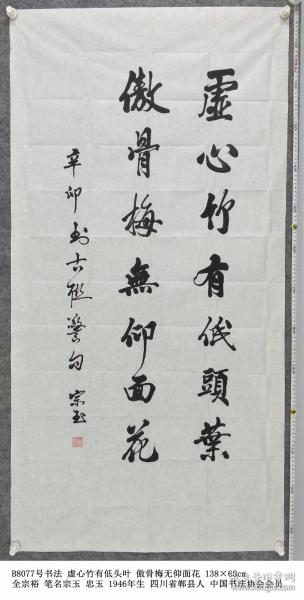 虛心竹有低頭葉
傲骨梅無仰面花
辛卯 古 警句 宗玉
B8077号书法 虚心竹有低头叶 傲骨梅无仰面花 138×69cm
全宗裕 笔名宗玉 忠玉 1946年生 四川省郫县人 中国书法协会会员